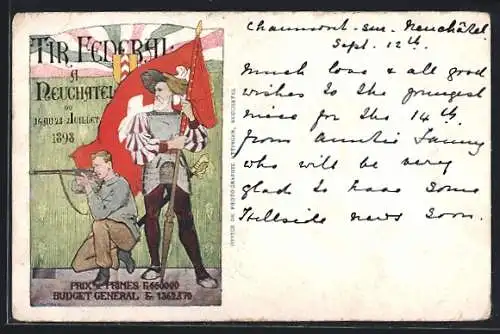 TIR FEDERAL
A
NEUCHATEL
DU
16 AU 28 JUILLET
1898
PRIX & PRIMES Fr 650000
BUDGET GENERAL Fr 1362870
Chaumont-sur-Neuchâtel
Sept. 12th.
Much love & all good
wishes to the youngest
niece for the 14th
from Auntie Fanny
who will be very
glad to have some
Hillside news soon.
OFFICE DE PHOTOGRAPHIE ATTINGER, NEUCHATEL